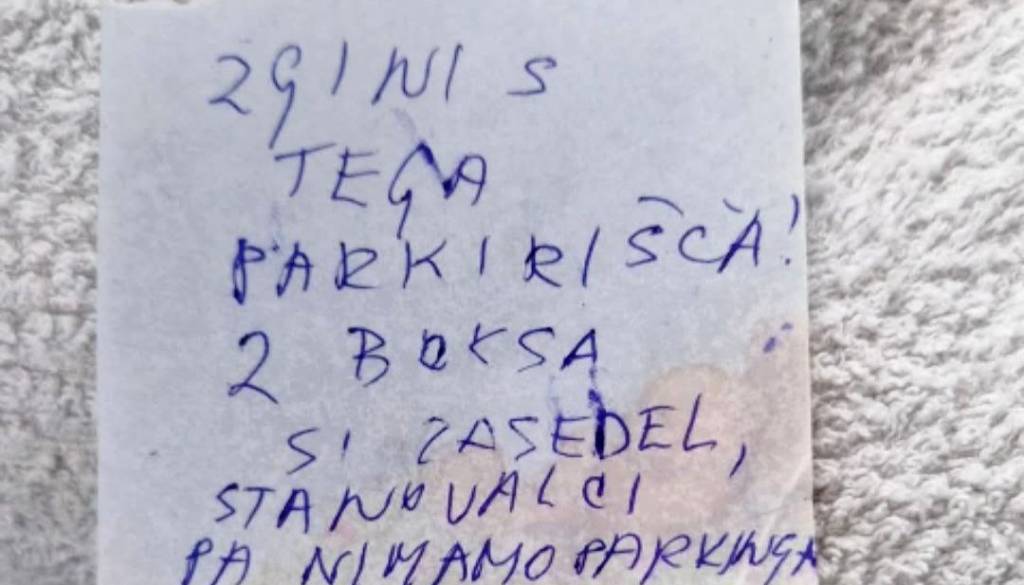 ZGINI S
TEGA
PARKIRIŠČA!
2 BOKSA
SI ZASEDEL,
STANOVALCI
PA NIMAMO PARKINGA